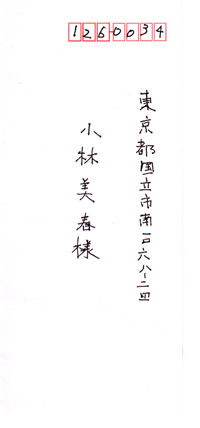 1250034
東京都国立市南一ノ六八ー二四
小林美春様